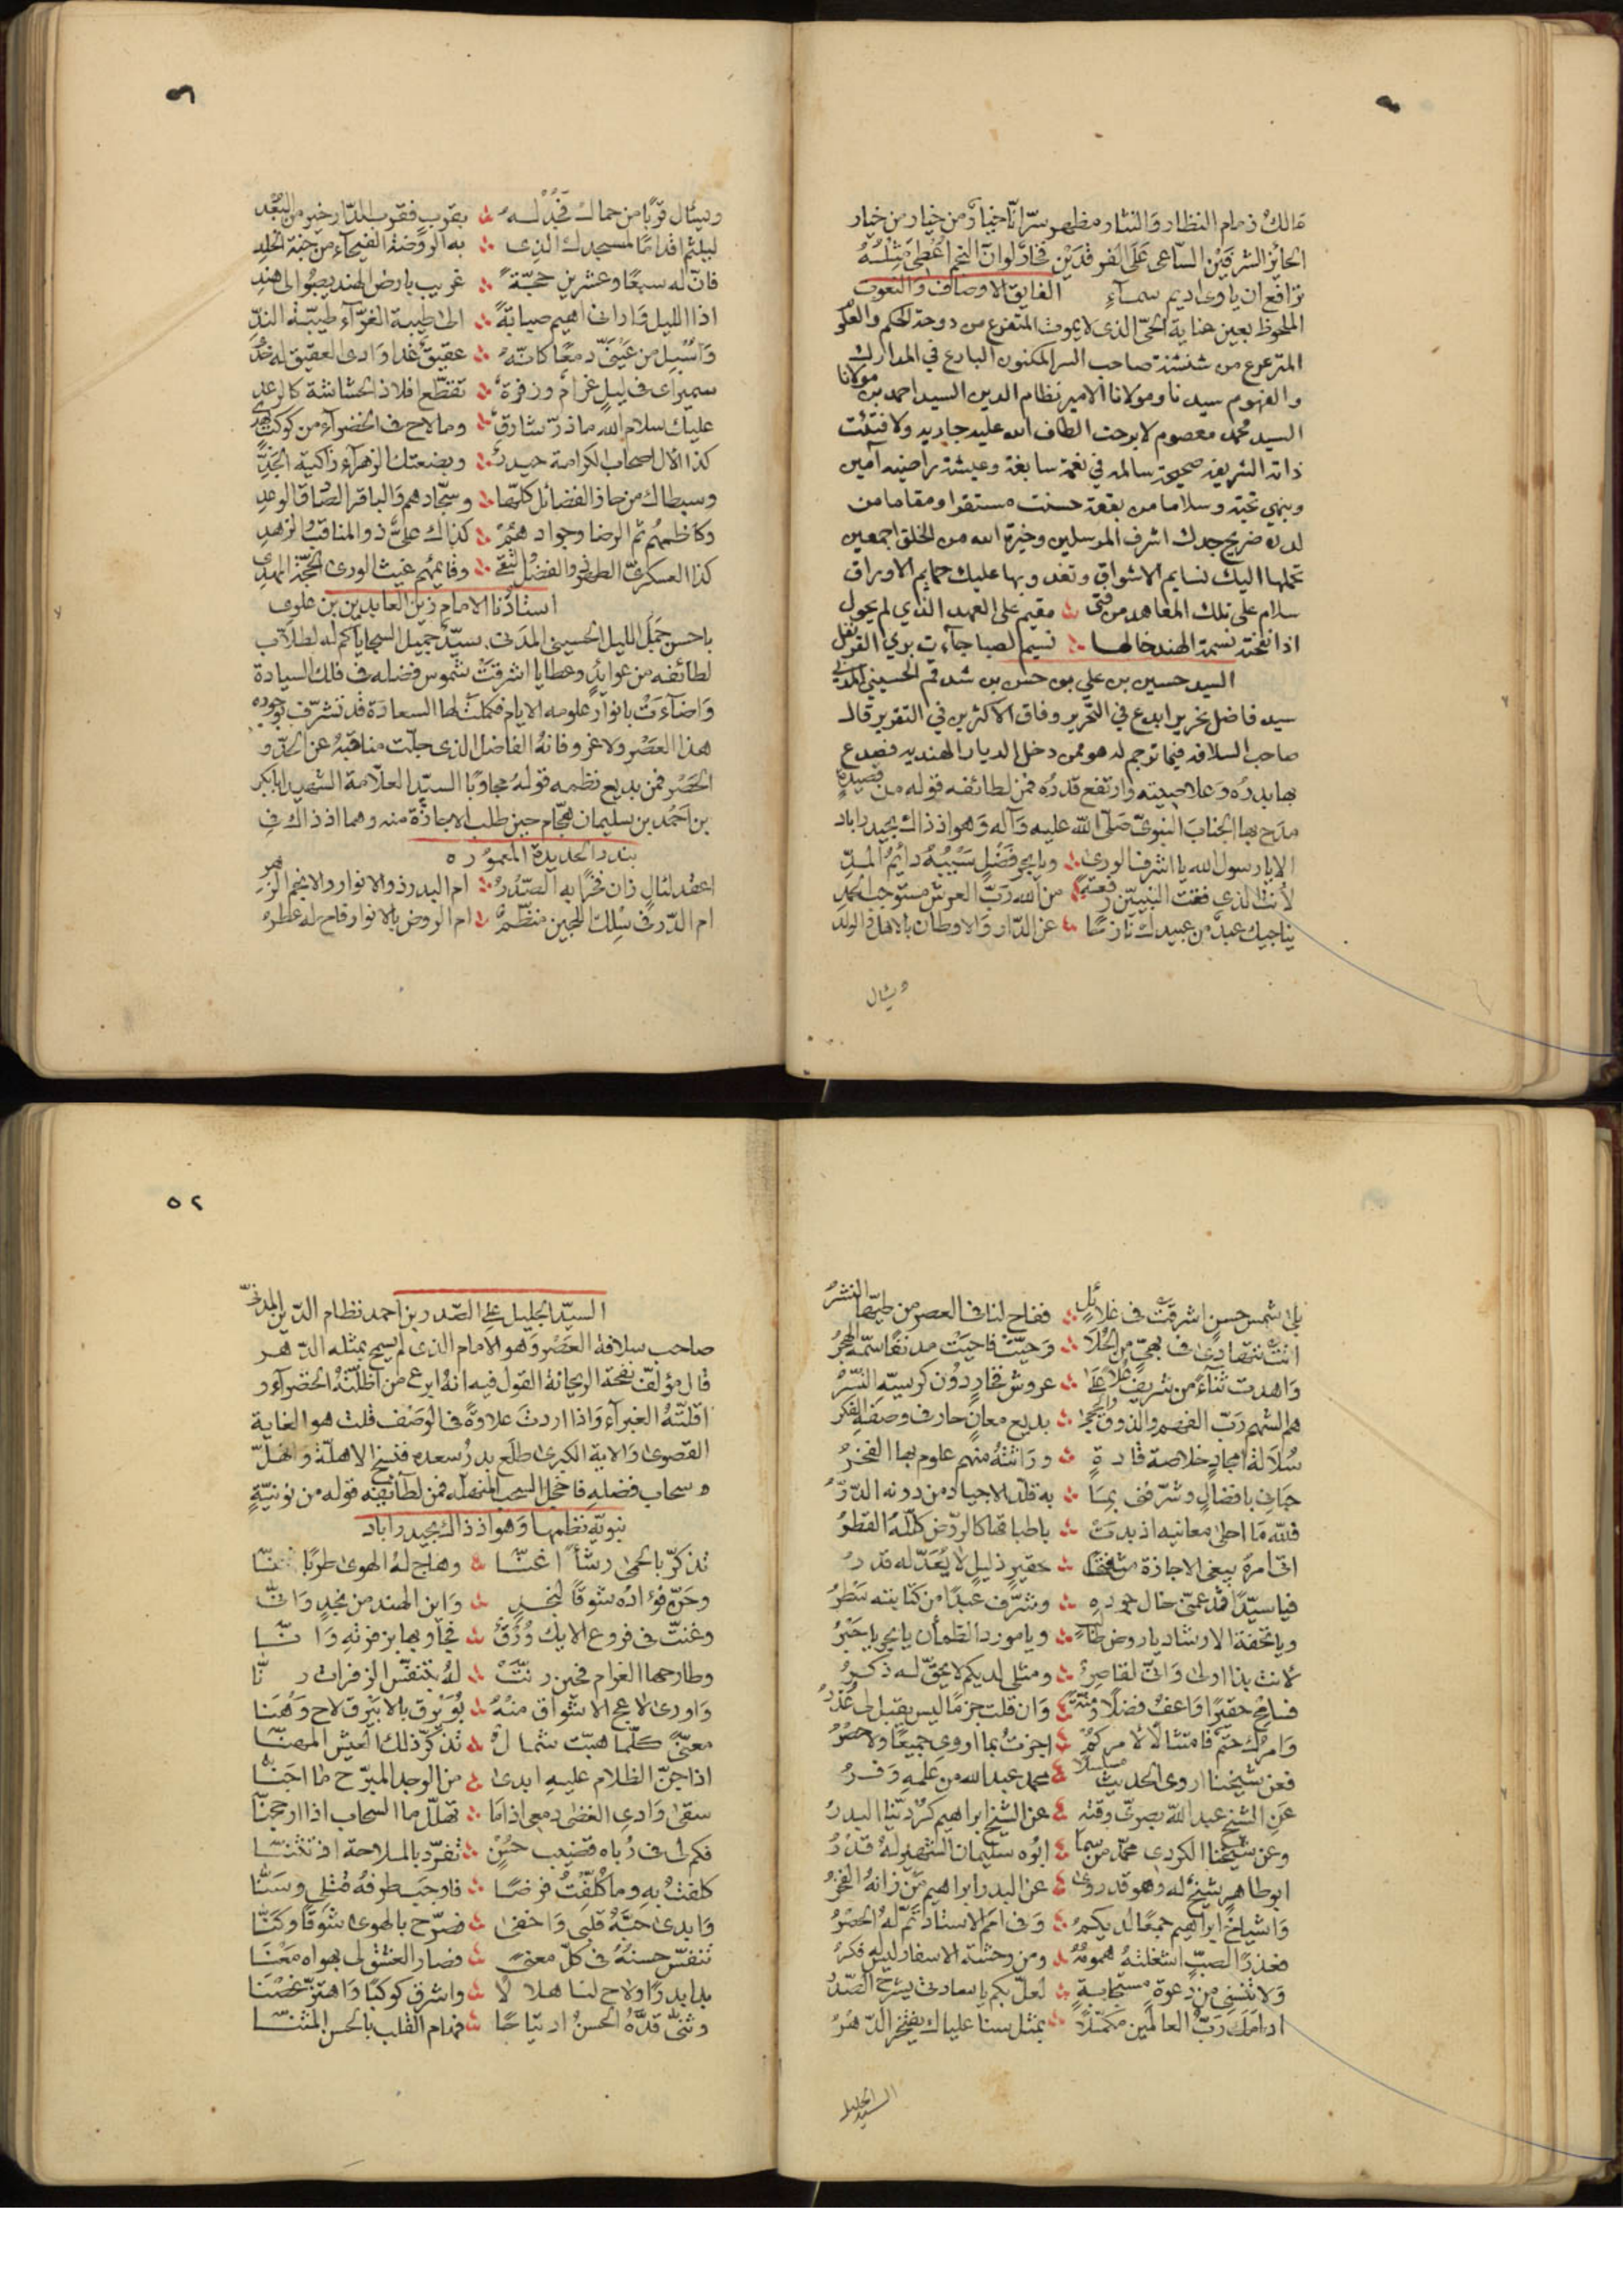 مالك ذمام النظار والنثار مظهر سر انا خيار من خيار من خيار
الحائز الشرفين الساعى على الفرقدين فخار لو ان النجم اعطى مثله
ترافع ان ياوى اديم سماء الفايق الاوصاف والنعوت
الملحوظ بعين عناية الحى الذى لا يموت المتفرع من دوحة الحكم والعلو
المترعرع من شنشنة صاحب السر المكنون البارع في المدارك
والفهوم سيدنا ومولانا الامير نظام الدين السيد احمد بن مولانا
السيد محمد معصوم لا برحت الطاف الله عليه جاريه ولا فتئت
ذاته الشريفه صحيحة سالمه في نعمة سابغة وعيشة راضيه آمين
وينهي تحية وسلاما من بقعة حسنت مستقرا ومقاما من
لدن ضريح جدك اشرف المرسلين وخيرة الله من الخلق اجمعين
تحملها اليك نسايم الاشواق وتغدو بها عليك حمايم الاوراق
سلام على تلك المعاهد من فتى ۞ مقيم على العهد الذي لم يحول
اذا نفخته نسمة الهند خالها ۞ نسيم الصبا جآءت بريا القرنفل
السيد حسين بن علي بن حسن بن شدقم الحسيني المدني
سيد فاضل نحرير ابدع في التحرير وفاق الاكثرين في التقرير قال
صاحب السلافه فيما ترجم له هو ممن دخل الديار الهنديه فصدع
بها بدره وعلا صيته وارتفع قدره فمن لطائفه قوله من قصيدة
مدح بها الجناب النبوى صلى الله عليه وآله وهو اذ ذاك بحيدراباد
الا يا رسول الله يا اشرف الورى ۞ ويا بحر فضل سيبه دائم المد
لأنت الذى فقت النبيين رفعة ۞ من الله رب العرش مستوجب الحمد
يناجيك عبد من عبيدك نازح ۞ عن الدار والاوطان بالاهل والولد
ويسال
٥١
ويسئال قربا من حماك فجد له ۞ بقرب فقرب الدار خير من البعد
ليلثم اقداما لمسجدك الذى ۞ به الروضة الفيحاء من جنة الخلد
فان له سبعا وعشرين حجة ۞ غريب بارض الهند يصبو الى هند
اذا الليل وارانى اهيم صبابة ۞ الى طيبة الغرآء طيبة الند
واسبل من عينى دمعا كانه ۞ عقيق غدا وادى العقيق له خد
سميراى فى ليل غرام وزفرة ۞ تقطع افلاذ الحشاشة كالرعد
عليك سلام الله ما ذر شارق ۞ وما لاح فى الخضرآء من كوكب
كذا الآل اصحاب الكرامة حيدر ۞ وبضعتك الزهرآء زاكية الجد
وسبطاك من حاز الفضائل كلها ۞ وسجادهم والباقر الصادق الوعد
وكاظمهم ثم الرضا وجوادهم ۞ كذاك على ذو المناقب والزهد
كذا العسكرى الطهر ذو الفضل التقى ۞ وقائمهم غيث الورى الحجة المهدى
استاذنا الامام زين العابدين بن علوى
باحسن جمل الليل الحسينى المدنى سيد جميل السجايا كم له لطلاب
لطائفه من عوائد وعطايا اشرقت شموس فضله فى فلك السيادة
واضآءت بانوار علومه الايام فكملت لها السعادة قد تشرف بوجوده
هذا العصر ولا غرو فانه الفاضل الذى جلت مناقبه عن الحد و
الحصر فمن بديع نظمه قوله مجاوبا السيد العلامة الشهير ابابكر
بن احمد بن سليمان هجام حين طلب الاجازة منه وهما اذ ذاك فى
بندر الحديدة المعموره
اعقد لئال زان فخرا به الصدر ۞ ام البدر ذو الانوار والانجم الزهر
ام الدر فى سلك اللجين منظم ۞ ام الروض بالانوار فاح له عطره
بلى شمس حسن اشرقت فى غلائل ۞ ففاح لنا فى العصر من طيها النشر
انت تتهادى فى بهى من الحلا ۞ وحيت فاحيت مدنفا سمه الهجر
واهدت ثناء من شريف علا على ۞ عروش فخار دون كرسيه النسر
هم الشهم رب الفهم والذوق والحجى ۞ بديع معان حار فى وصفه الفكر
سلالة امجاد خلاصة قادة ۞ وراثته منهم علوم بها الفخر
حبانى بافضال وشرفنى بما ۞ به قلد الاجياد من دونه الدر
فلله ما احلى معانيه اذ بدت ۞ باطباقها كالروض كلله القطر
اتى امره يبغى الاجازة ۞ حقير ذليل لا يعد له قدر
فيا سيدا قد عمنى خال جوده ۞ وشرف عبدا من كتابته سطر
ويا تحفة الارشاد يا روض ۞ ويا مورد الظمأن يا بحر يا حبر
لانت بذا اولى وانى لقاصر ۞ ومثلى لديكم لا يحق له ذكر
فسامح حقيرا واعف فضلا ومنة ۞ وان قلت جزما ليس يقبل لى عذر
وامرك حتم فامتثالا لامركم ۞ اجزت بما اروى جميعا ولا حصر
فعن شيخنا اروى الحديث مسلسلا ۞ محمد عبد الله من علمه وفر
عن الشيخ عبد الله بصرى وقته ۞ عن الشيخ ابراهيم كردينا البدر
وعن شيخنا الكردى محمد من سما ۞ ابوه سليمان الشهير له قدر
ابو طاهر شيخ له وهو قد روى ۞ عن البدر ابراهيم من زانه الفخر
واشياخ ابراهيم جمعا لديكم ۞ وفى امم الاستاد تم له الحصر
فعذرا لصب اشغلته همومه ۞ ومن وحشة الاسفار ليس له فكر
ولا تنسنى من دعوة مستجابة ۞ لعل بكم يا سعادتى ينشرح الصدر
ادامك رب العالمين مكملا ۞ بمثل سنا علياك يفتخر الدهر
السيد الجليل
٥٢
السيد الجليل على الصدر بن احمد نظام الدين المدنى
صاحب سلافة العصر وهو الامام الذى لم يسمح بمثله الدهر
قال مؤلف نفحة الريحانة القول فيه انه ابرع من اظلته الخضرآء و
اقلته الغبرآء واذا اردت علاوة فى الوصف قلت هو الغاية
القصوى والاية الكبرى طلع بدر سعده فنسخ الاهلة وانهل
سحاب فضله فاخجل السحب المنهله فمن لطائفه قوله من نونية
نبوية نظمها وهو اذ ذاك بحيدراباد
تذكر بالحمى رشأ اغنا ۞ وهاج له الهوى طربا فغنا
وحن فؤاده شوقا لنجد ۞ واين الهند من نجد وانى
وغنت فى فروع الايك ورق ۞ فجاوبها بزفرته وانا
وطارحها الغرام فحين رنت ۞ له بتنفس الزفرات رنا
واورى لاعج الاشواق منه ۞ بويرق بالابيرق لاح وهنا
معنى كلما هبت شمال ۞ تذكر ذلك العيش المهنا
اذا جن الظلام عليه ابدى ۞ من الوجد المبرح ما اجنا
سقى وادى الغضى دمعى اذا ما ۞ تهلل ما السحاب اذا ارجحنا
فكم لى فى رباه قضيب حسن ۞ تفرد بالملاحة اذ تثنا
كلفت به وما كلفت فرضا ۞ فاوجب طرفه قتلى وسنا
وابدى حبه قلبى واخفى ۞ فصرح بالهوى شوقا وكنا
تفنن حسنه فى كل معنى ۞ فصار العشق لى بهواه معنا
بدا بدرا ولاح لنا هلالا ۞ واشرق كوكبا واهتز غصنا
وثنى قده الحسن ارتياحا ۞ فهام القلب بالحسن المثنا